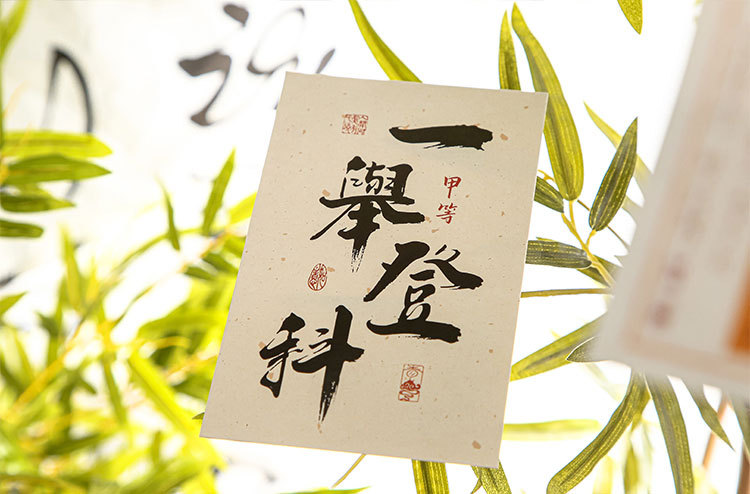 一舉登科
甲等